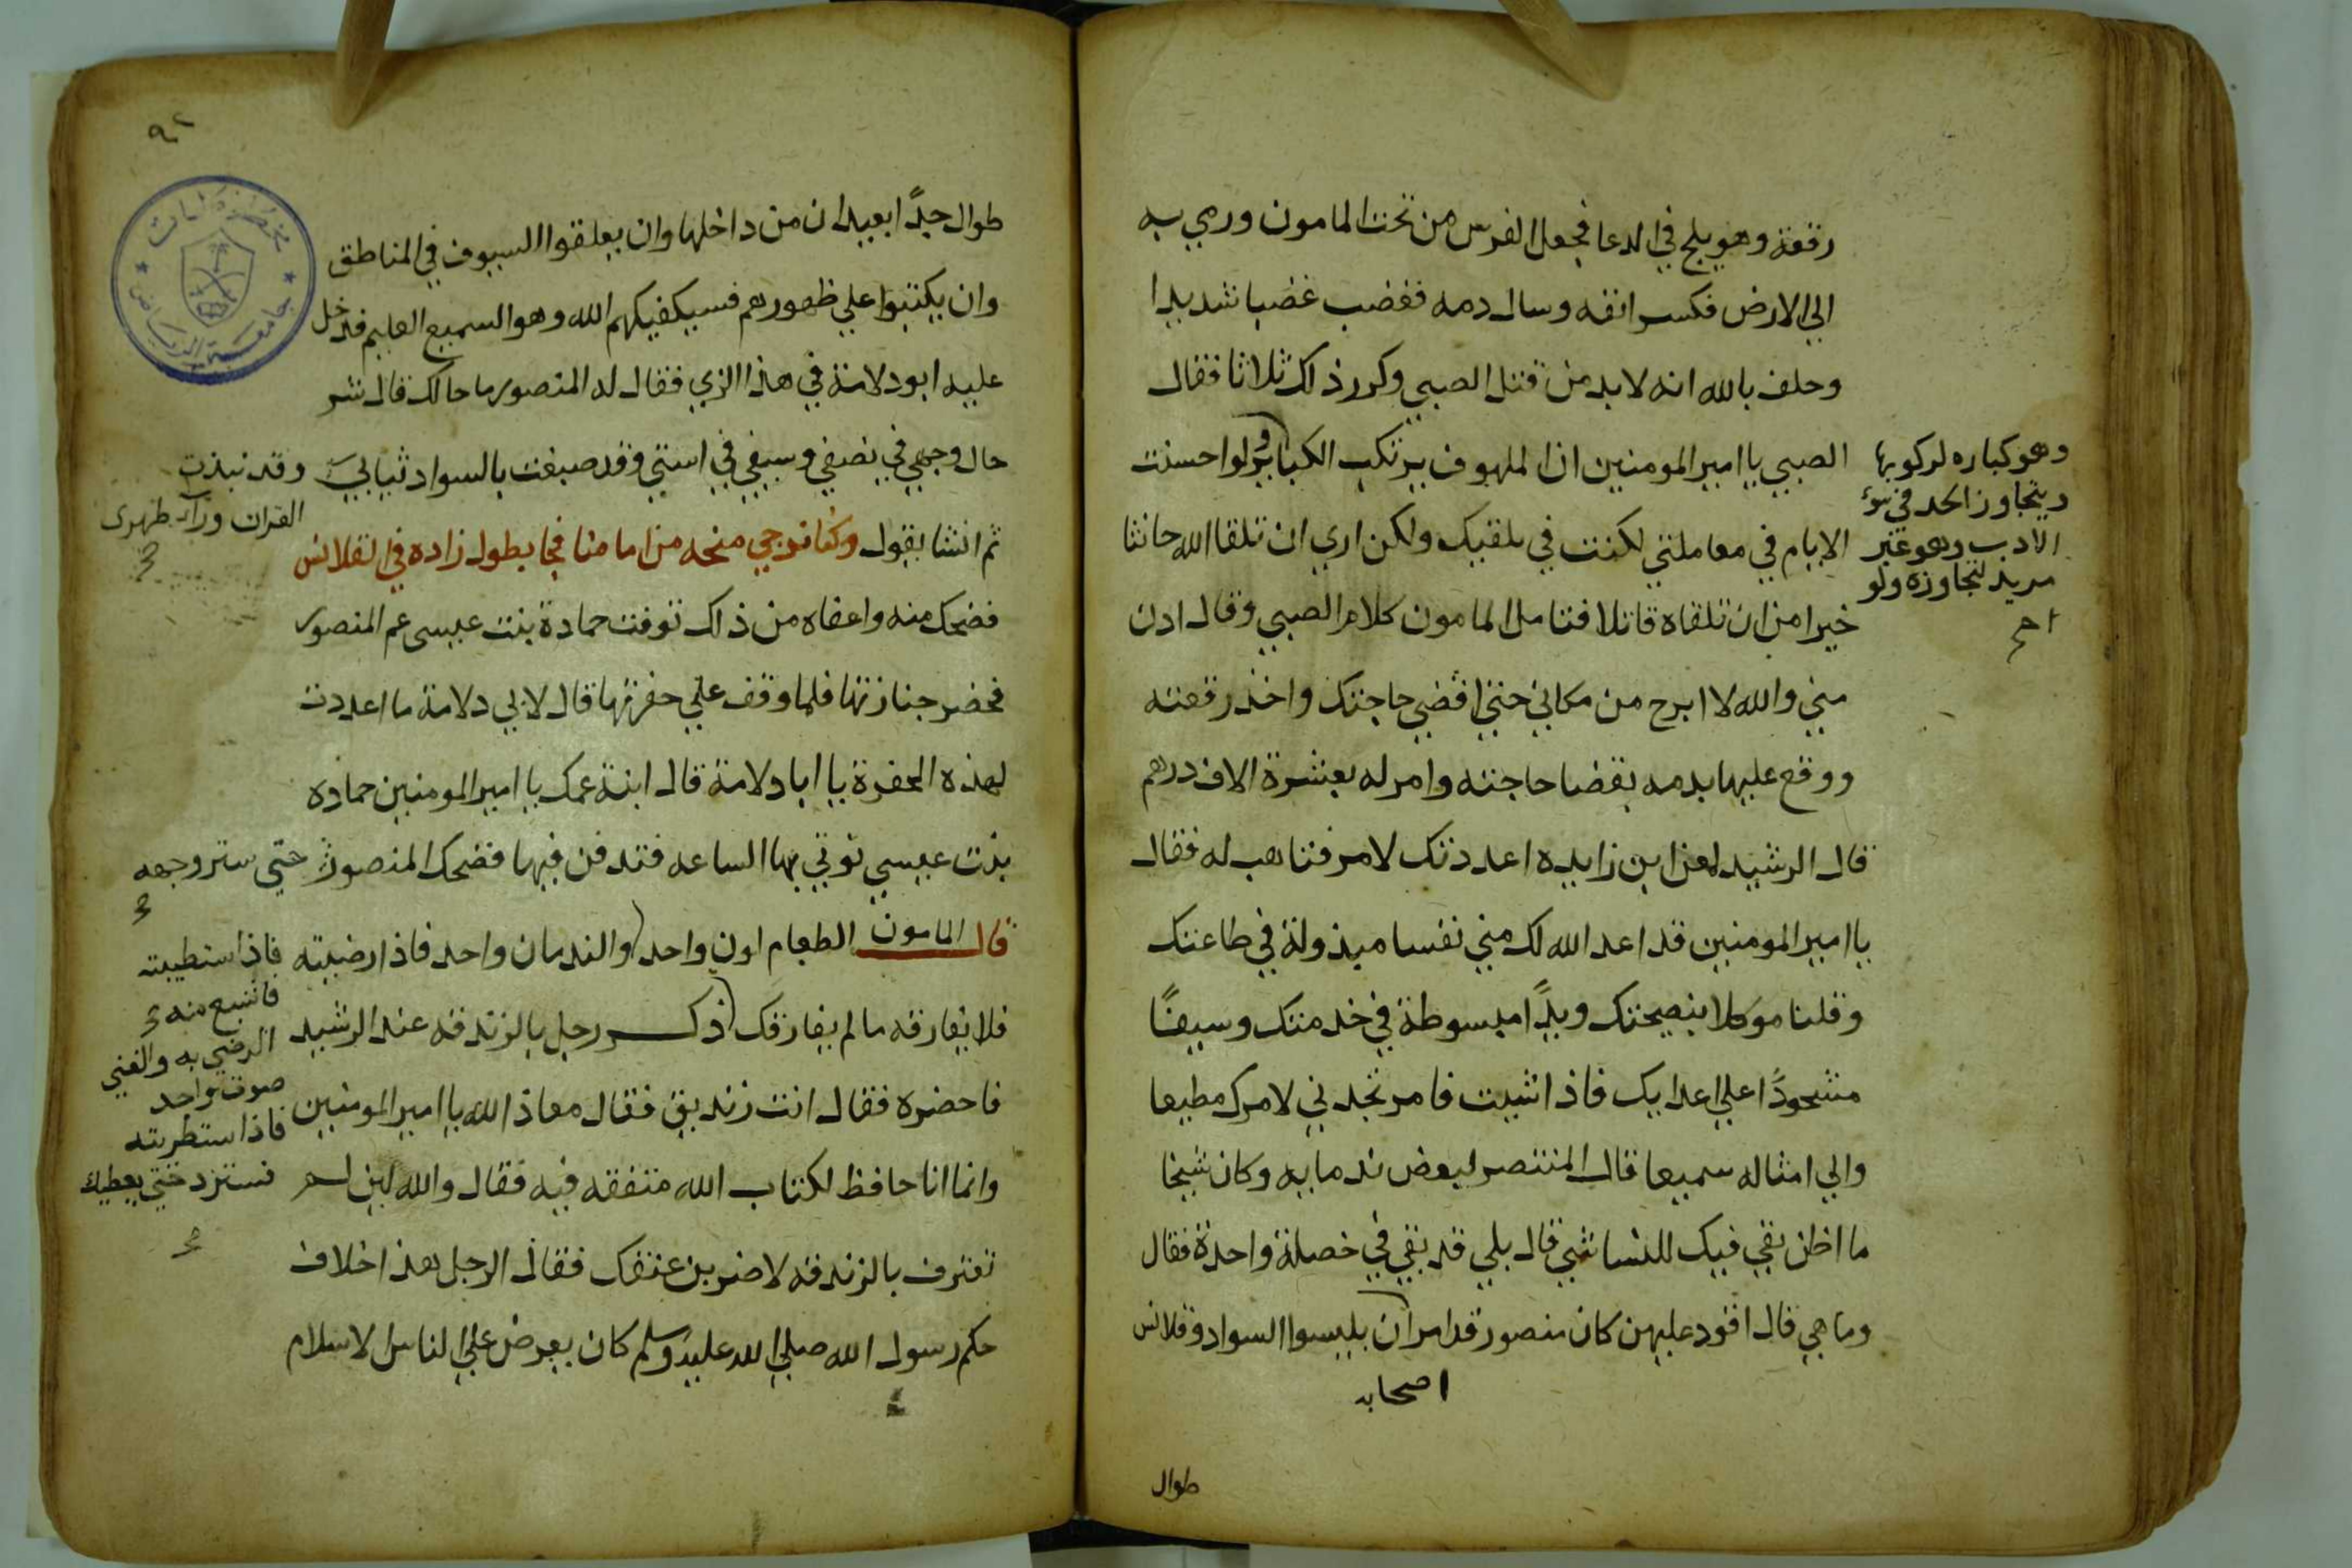 رقعة وهو يلح في الدعا فجعل الفرس من تحت المامون ورمي به
الي الارض فكسر انفه وسال دمه فغضب غضبا شديدا
وحلف بالله انه لابد من قتل الصبي وكرر ذلك ثلاثا فقال
الصبي يا امير المومنين ان الملهوف يرتكب الكباير ولو احسنت
الايام في معاملتي لكنت في بلقيك ولكن اري ان تلقا الله حانثا
خيرا من ان تلقاه قاتلا فتامل المامون كلام الصبي وقال ادن
مني والله لا ابرح من مكاني حتي اقضي حاجتك واخذ رقعته
ووقع عليها بدمه بقضا حاجته وامر له بعشرة الاف درهم
قال الرشيد لمعن ابن زايده اعددتك لامر فتاهب له فقال
يا امير المومنين قد اعد الله لك مني نفسا مبذولة في طاعتك
وقلبا موكلا بنصيحتك ويدًا مبسوطة في خدمتك وسيفًا
مشحودًا علي اعدايك فاذا شيت فامر تجدني لامرك مطيعا
والي امثاله سميعا قال المنتصر لبعض ندمايه وكان شيخا
ما اظن بقي فيك للنسا شي قال بلي قد بقي في خصلة واحدة فقال
وما هي قال اقود عليهن كان منصور قد امر ان يلبسوا السواد وقلانس
اصحابه
طوال
وهو كباره لركوبها
ويتجاوز الحد في سوء
الادب وهو غير
مريد لتجاوزه ولو
صح
٩٢
طوال جدًا بعيدان من داخلها وان يعلقوا السيوف في المناطق
وان يكتبوا علي ظهورهم فسيكفيكهم الله وهو السميع العليم فدخل
عليه ابو دلامة في هذا الزي فقال له المنصور ما حالك قال شر
حال وجهي في نصفي وسيفي في استي وقد صبغت بالسواد ثيابي وقد نبذت
القران ورآء ظهرى
ثم انشا يقول وكنا نرجي منحه من امامنا فجا بطول زاده في القلانس
فضحك منه واعفاه من ذلك توفت حمادة بنت عيسى عم المنصور
فحضر جنازتها فلما وقف علي حفرتها قال لابي دلامة ما اعددت
لهذه الحفرة يا ابا دلامة قال ابنة عمك يا امير المومنين حماده
بنت عيسي توتي بها الساعه فتدفن فيها فضحك المنصور حتي ستر وجهه
قال المامون الطعام لون واحد والندمان واحد فاذا رضيته
فلا تفارقه ما لم يفارقك ذكر رجل بالزندقه عند الرشيد
فاحضره فقال انت زنديق فقال معاذ الله يا امير المومنين
وانما انا حافظ لكتاب الله متفقه فيه فقال والله لين لم
تعترف بالزندقه لاضربن عنقك فقال الرجل هذا خلاف
حكم رسول الله صلي الله عليه وسلم كان يعرض علي الناس الاسلام
فاذا استطيبته
فاشبع منه
الرضي به والغني
صوت واحد
فاذا استطربته
فستزد حتي يعطيك
جامعة الرياض